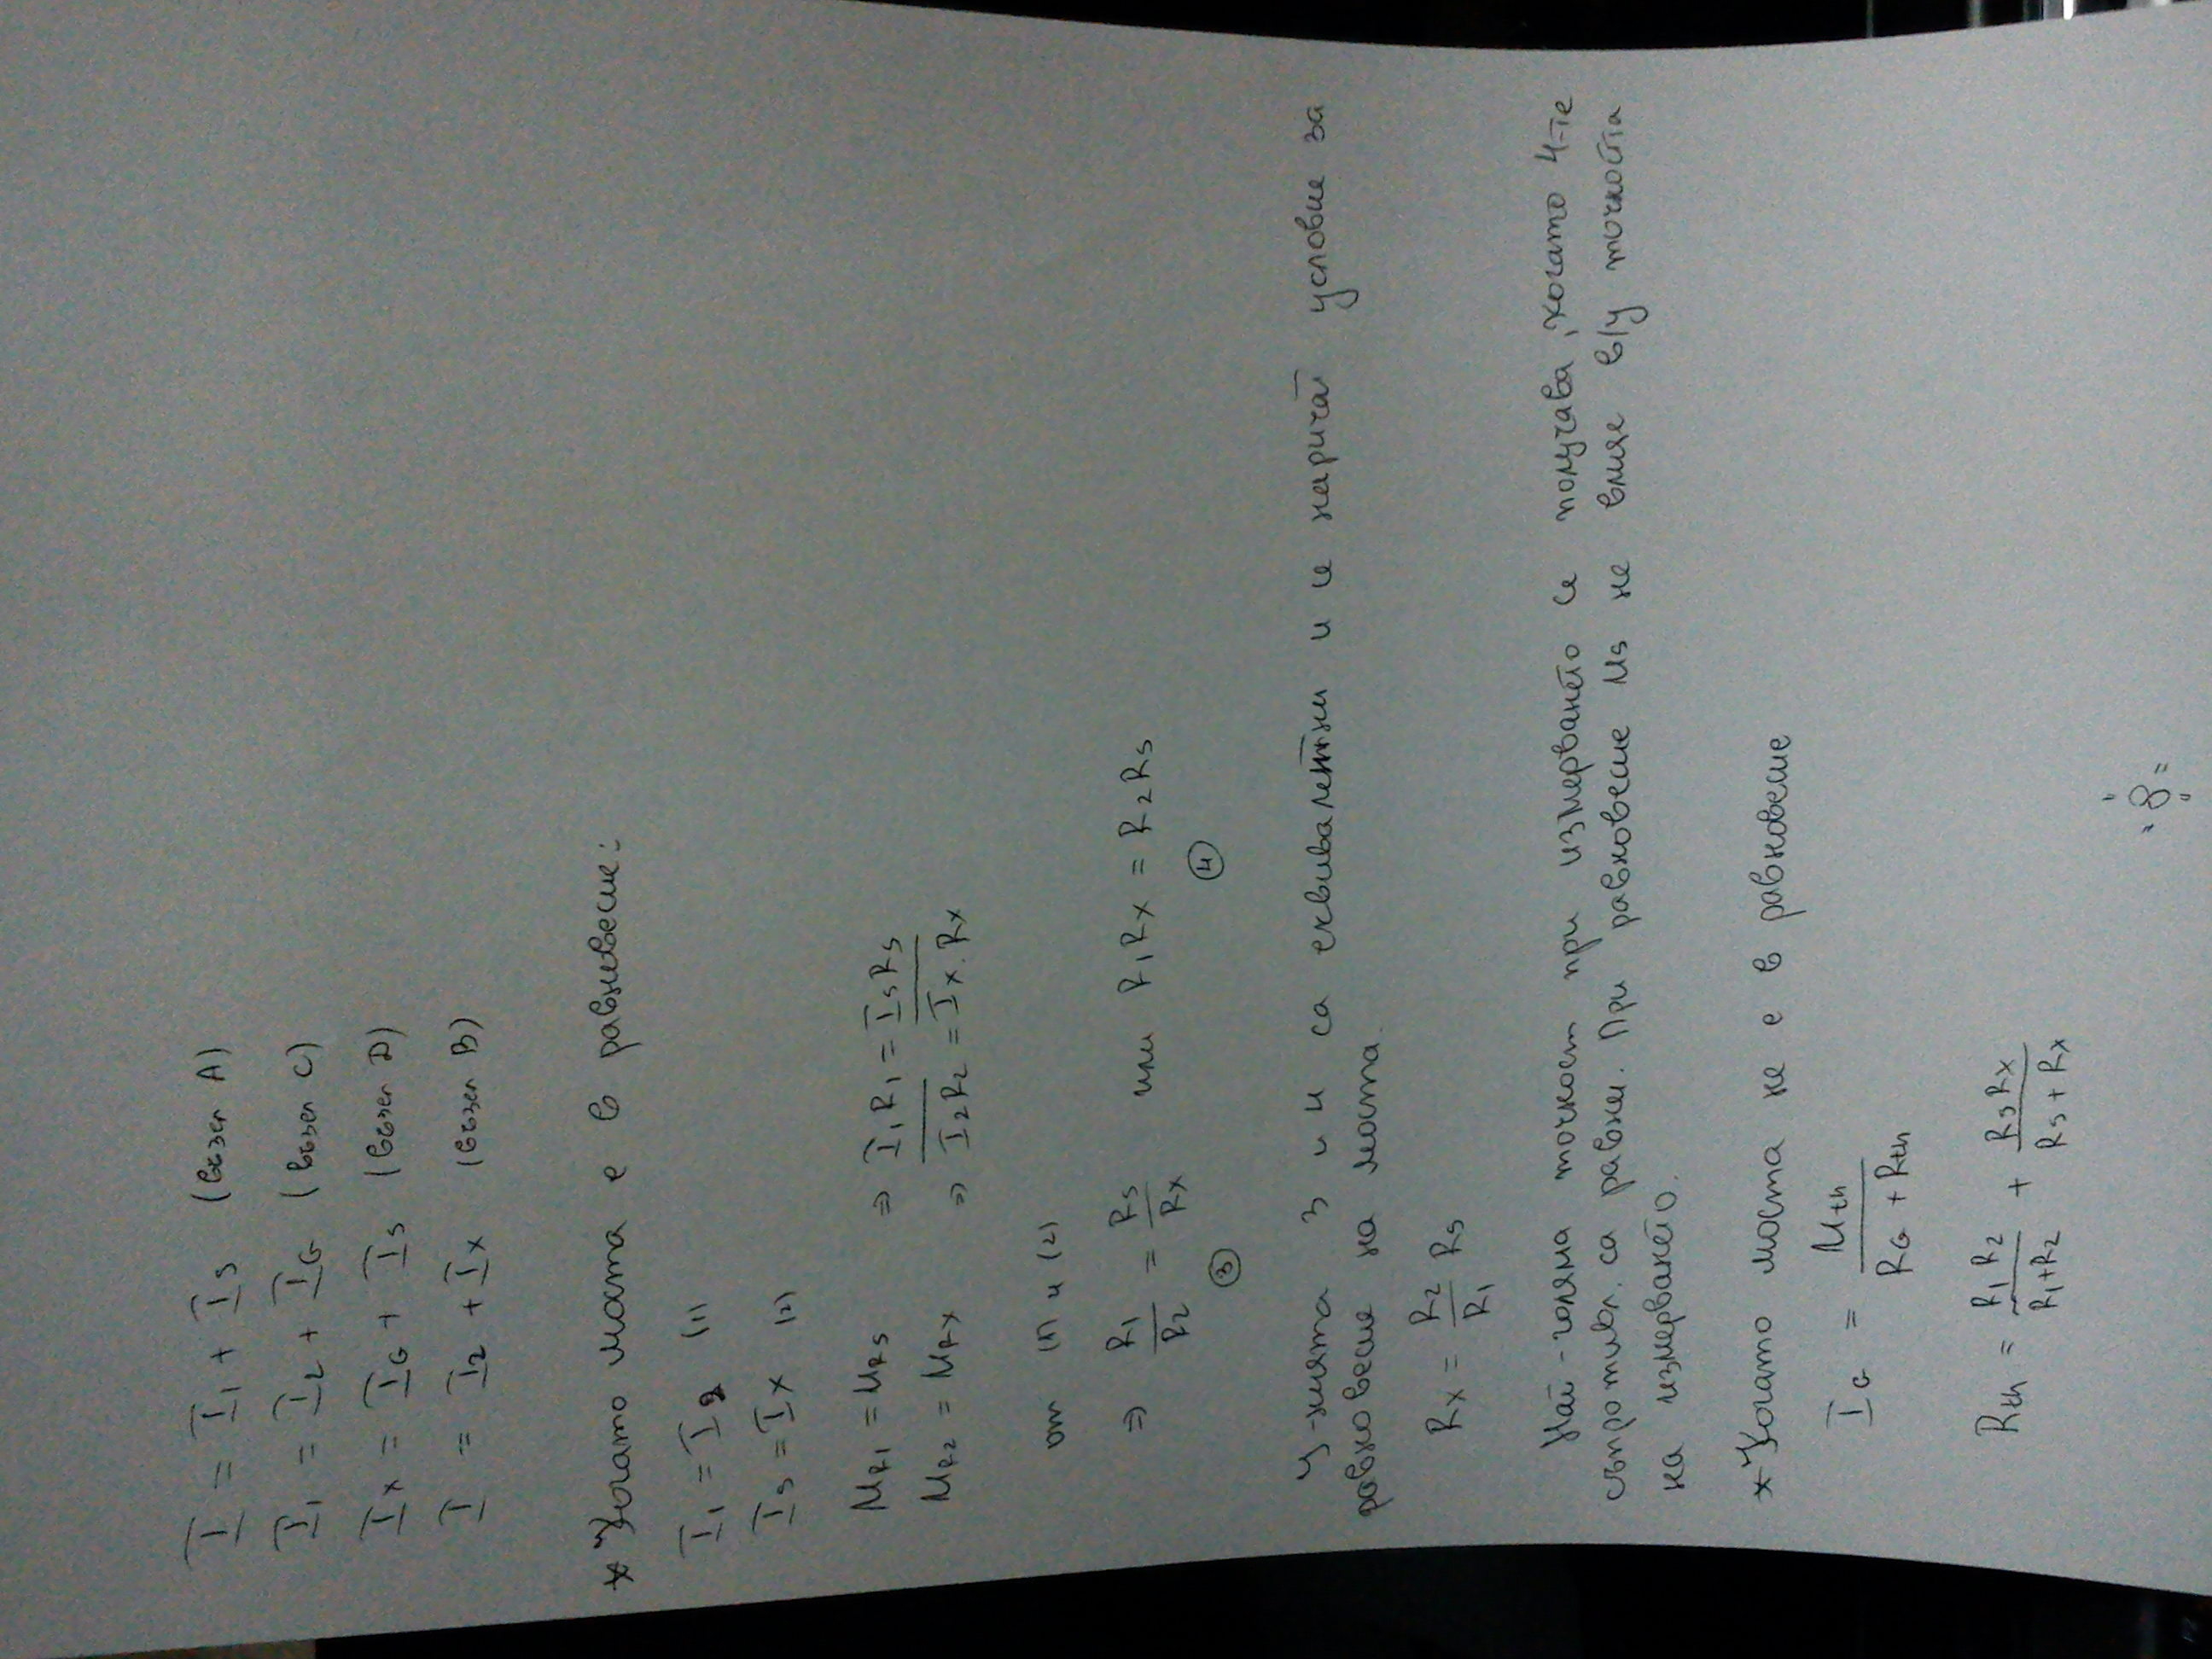 I = I₁ + I₅ (възел A)
I₁ = I₂ + I_G (възел C)
Iₓ = I_G + I₅ (възел D)
I = I₂ + Iₓ (възел B)
* Когато моста е в равневесие:
I₁ = I₂ (1)
I₅ = Iₓ (2)
U_R1 = U_R5 ⇒ I₁R₁ = I₅R₅
U_R2 = U_Rx ⇒ I₂R₂ = Iₓ.Rₓ
от (1) и (2)
⇒ R₁/R₂ = R₅/Rₓ или R₁Rₓ = R₂R₅
③ ④
У-нията 3 и 4 са еквивалентни и се наричат условие за
равновесие на моста.
Rₓ = R₂/R₁ R₅
Най-голяма точност при измерването се получава, когато 4-те
съпротивл. са равни. При равновесие U₅ не влияе в/у точността
на измерването.
* Когато моста не е в равновесие
I_G = U_th / (R_G + R_th)
R_th = R₁R₂/(R₁+R₂) + R₅Rₓ/(R₅+Rₓ)
8